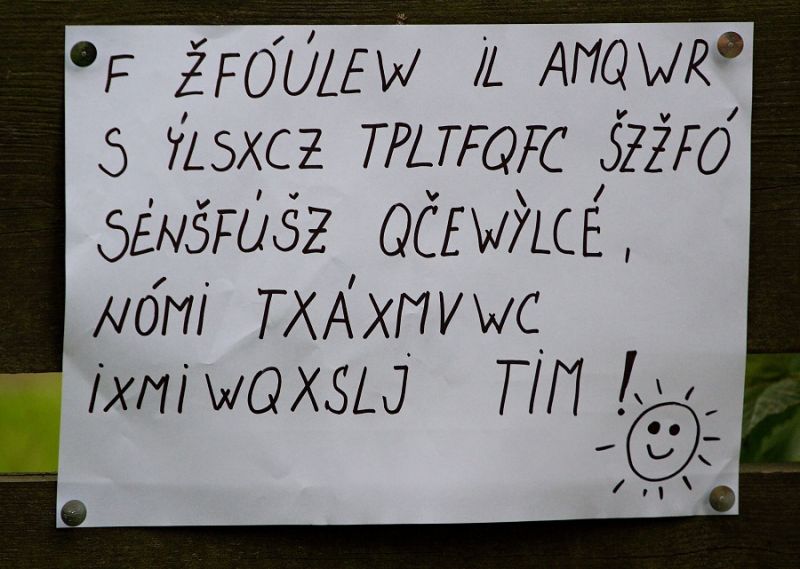 F ŽFÓÚLEW iL AMQWR
S ÝLSXCZ TPLTFQFC ŠZŽFÓ
SÉNŠFÚŠZ QČEWỲLCÉ,
NÓMi TXÁXMVWC
iXMiWQXSLJ TiM!